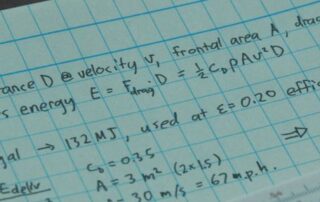 ance D @ velocity v, frontal area A, drag
s energy E = F_drag · D = ½ C_D ρ A v² D
gal → 132 MJ, used at ε = 0.20 effi
C_D = 0.35
A = 3 m² (2 x 1.5)
30 m/s = 67 m.p.h.
⇒